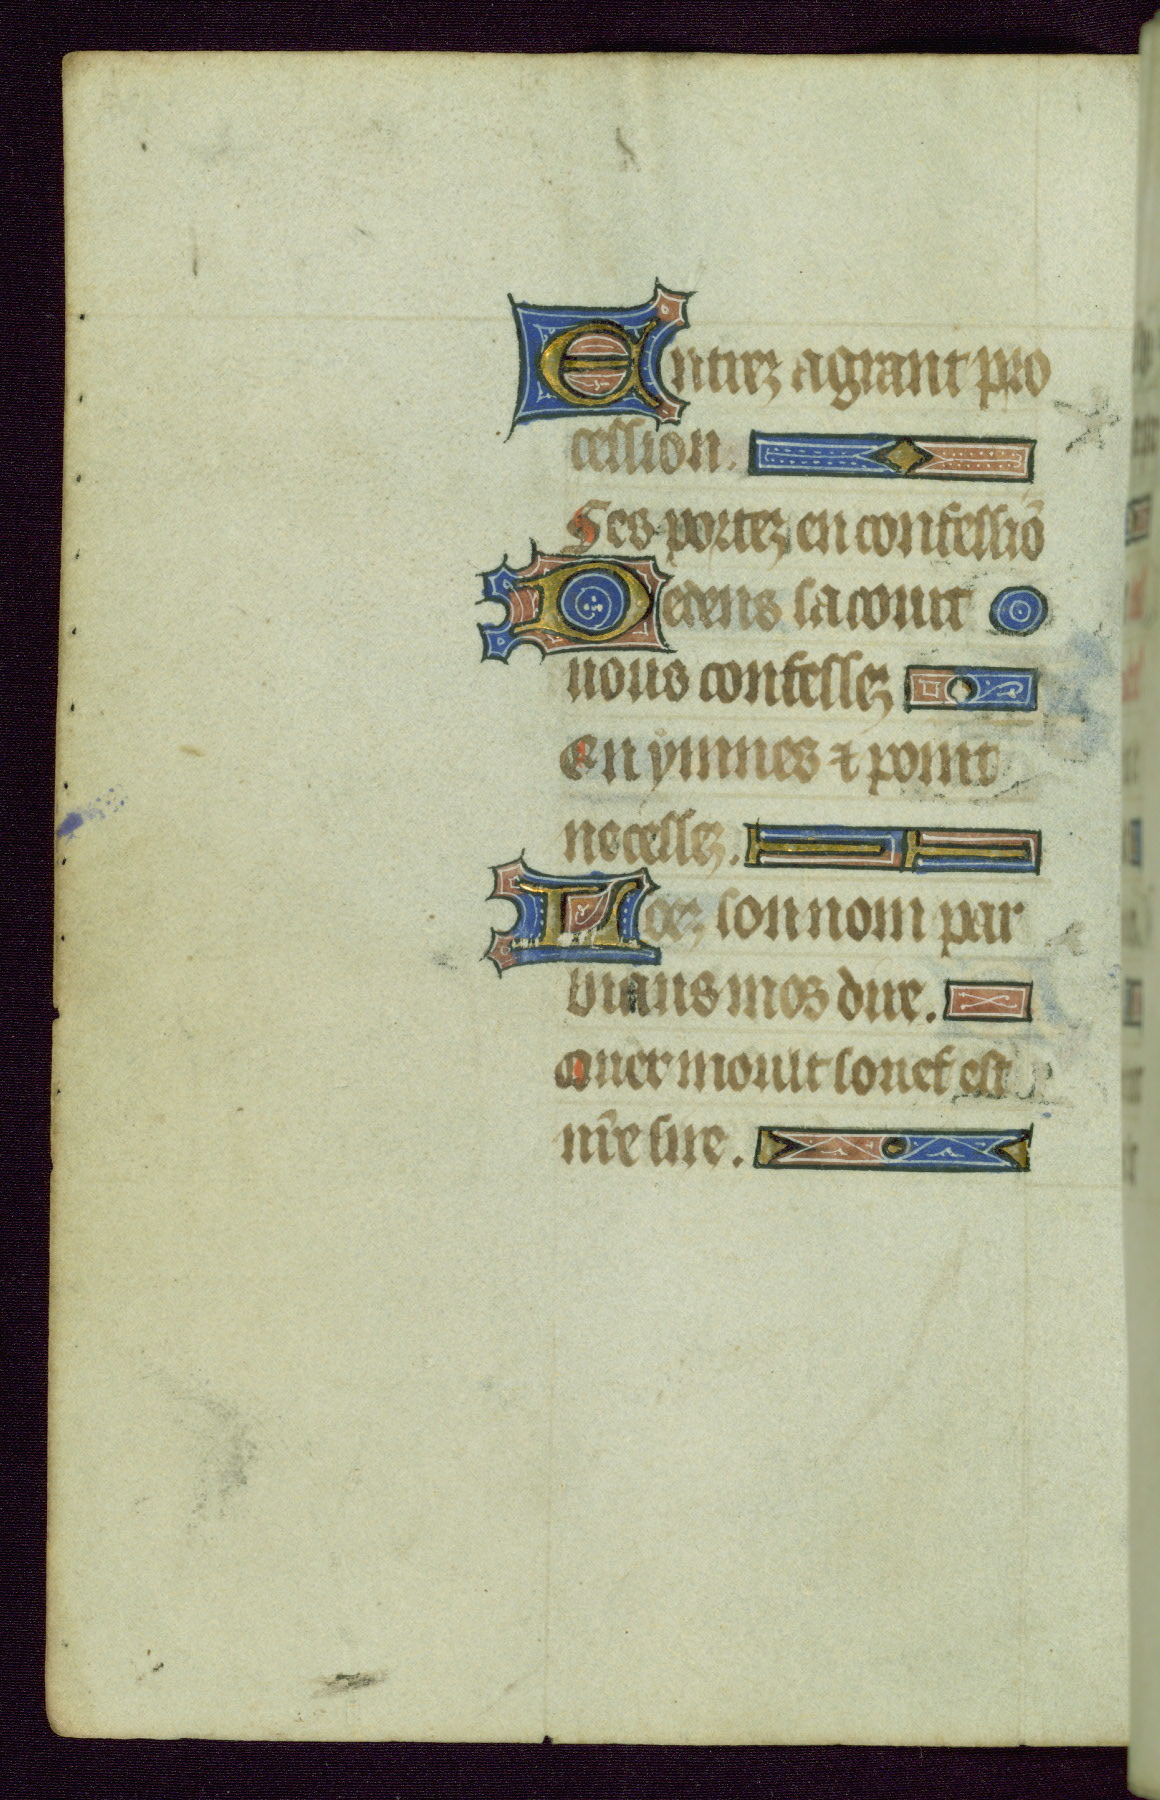 Entrez a grant pro
cession.
Ses portez en confessiō
Dedens sa court
uous confessez
En ymnes ⁊ point
ne cessez.
Loez son nom par
diaus moz dire.
Quer moult souef est
nr̄e sire.